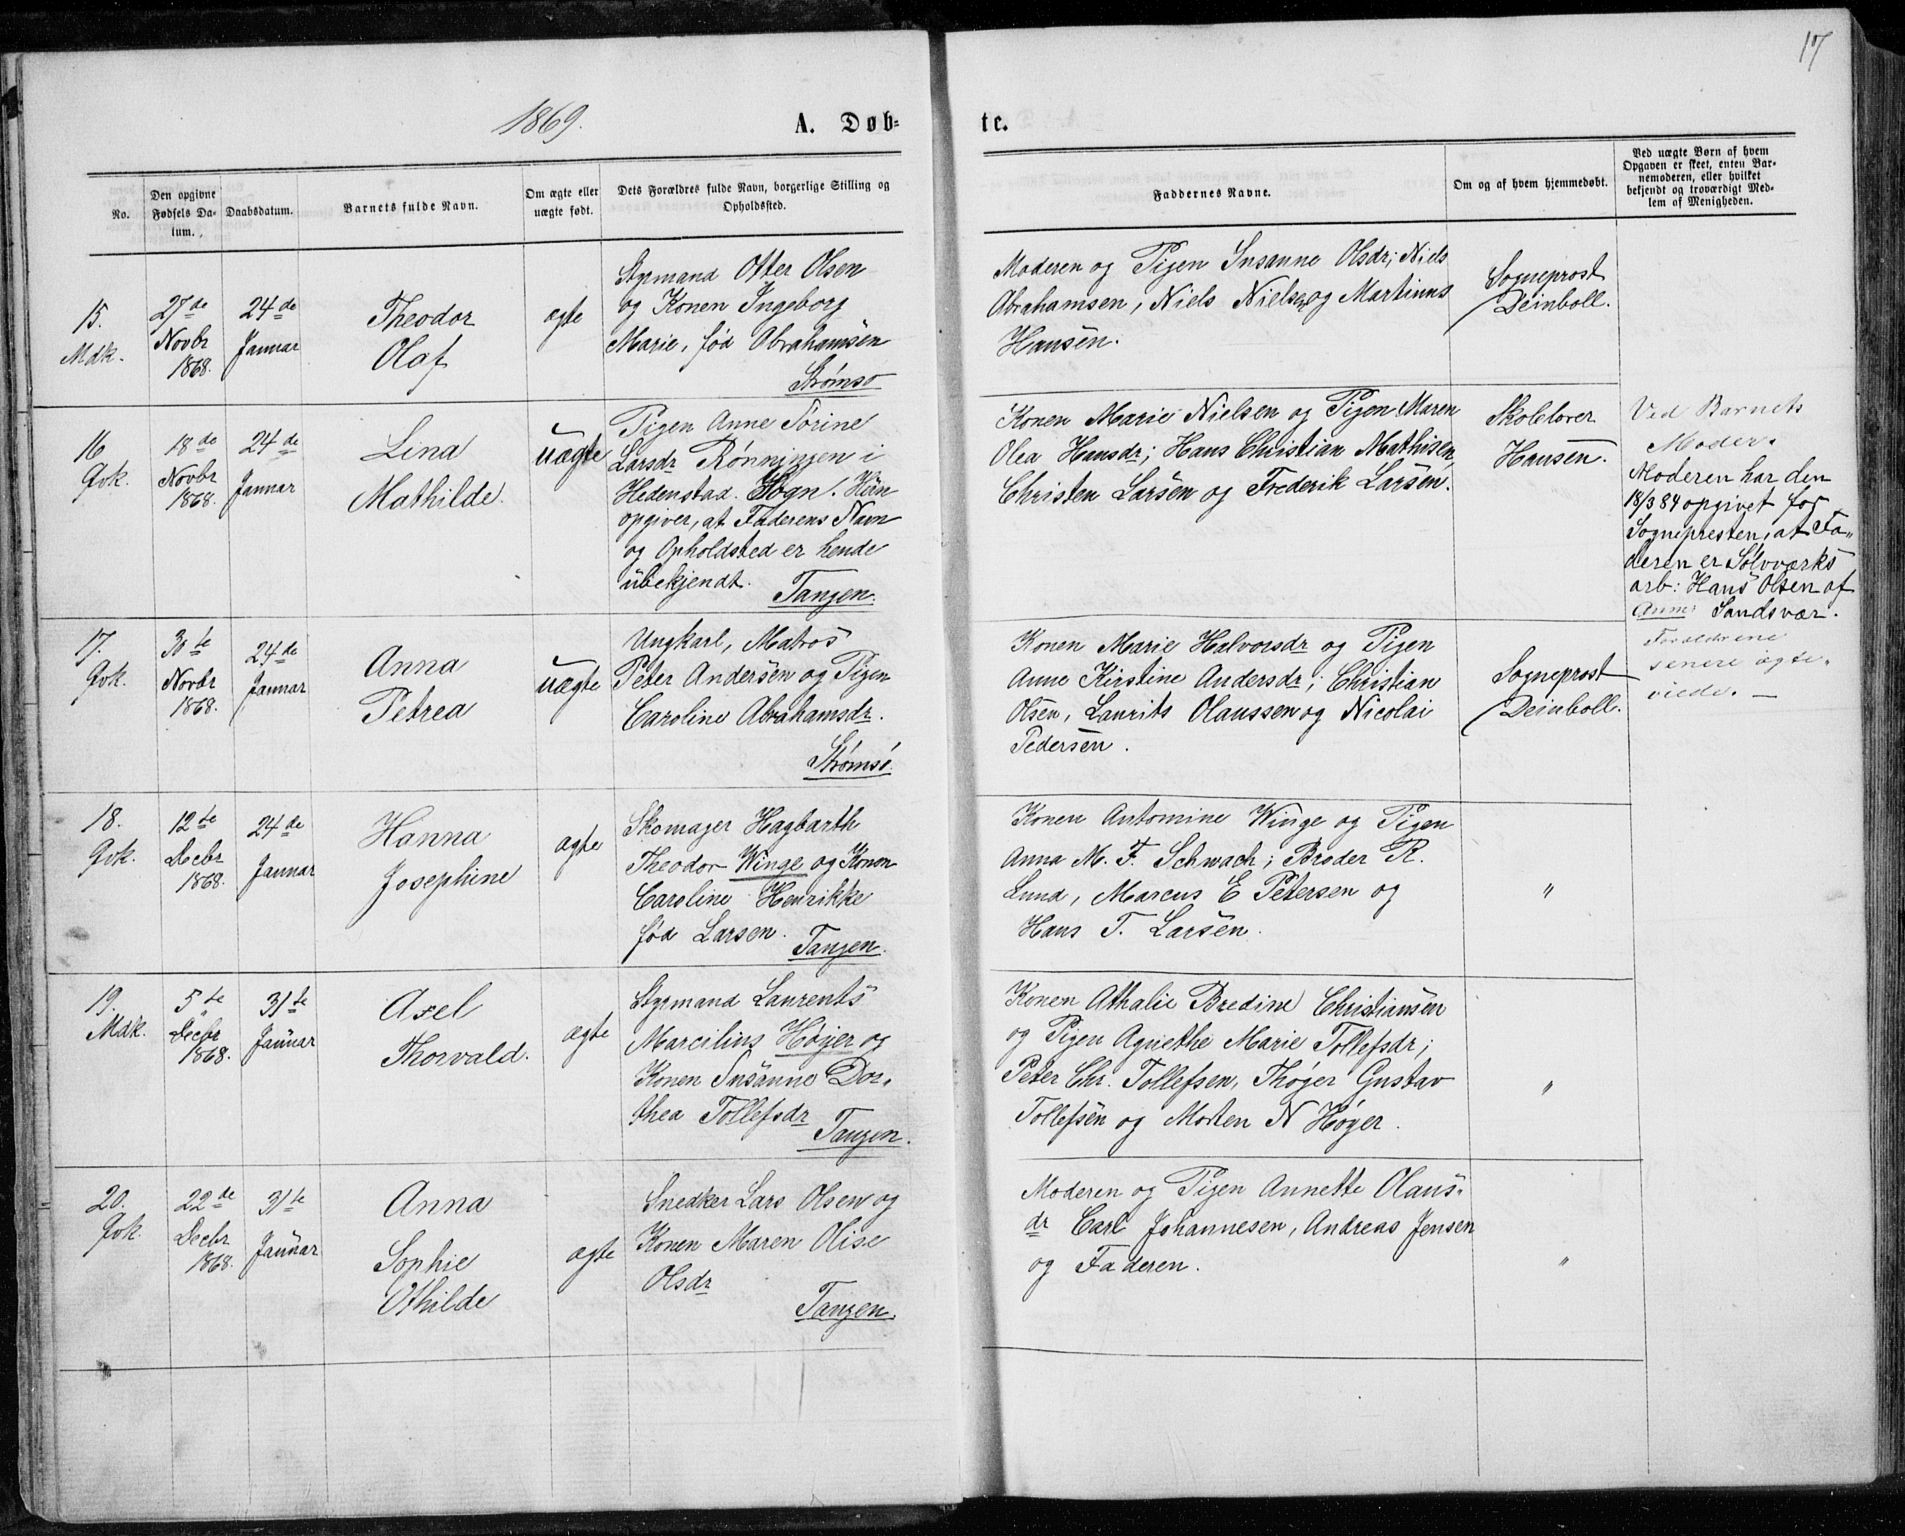 17
1869.
A. Døb-
te.
No.
Den opgivne
Fødsels Da-
tum.
Daabsdatum.
Barnets fulde Navn.
Om ægte eller
uægte født.
Dets Forældres fulde Navn, borgerlige Stilling og
Opholdssted.
Faddernes Navne.
Om og af hvem hjemmedøbt.
Ved uægte Børn af hvem
Opgaven er skeet, enten Bar-
nemoderen, eller hvilket
bekjendt og troværdigt Med-
lem af Menigheden.
15.
Mdk.
27de
Novbr
1868.
24de
Januar
Theodor
Olaf
ægte
Styrmand Otter Olsen
og Konen Ingeborg
Marie, fød Abrahamsen
Strømsø
Moderen og Pigen Susanne Olsdr; Niels
Abrahamsen, Niels Nielsen og Martinus
Hansen.
Sogneprost
Deinboll.
16
Qvk.
18de
Novbr
1868.
24de
Januar
Lina
Mathilde
uægte
Pigen Anne Torine
Larsdr Rønningen i
Hedenstad. Sogn. Hun
opgiver, at Faderens Navn
og Opholdsted er hende
ubekjendt.
Tangen.
Konen Marie Nielsen og Pigen Maren
Olea Hansdr; Hans Christian Mathisen,
Christen Larsen og Frederik Larsen.
Skolelærer
Hansen.
Ved Barnets
Moder.
Moderen har den
18/3 84 opgivet for
Sognepresten, at Fa-
deren er Sølvværks
arb: Hans Olsen af
Anm: Sandsvær.
Forældrene
senere ægte-
viede. —
17.
Qvk.
30te
Novbr
1868.
24de
Januar
Anna
Petrea
uægte
Ungkarl, Matros
Peter Andersen og Pigen
Caroline Abrahamsdr.
Strømsø.
Konen Marie Halvorsdr og Pigen
Anne Kirstine Andersdr; Christian
Olsen, Laurits Olaussen og Nicolai
Pedersen.
Sogneprost
Deinboll.
18.
Qvk.
12te
Decbr
1868.
24de
Januar
Hanna
Josephine
ægte
Skomager Hagbarth
Theodor Winge og Konen
Caroline Henrikke
fød Larsen.
Tangen.
Konen Antomine Winge og Pigen
Anna M. F. Schwach; Broder R.
Lund, Marcus E Petersen og
Hans T. Larsen.
"
19.
Mdk.
5te
Decbr
1868.
31te
Januar
Axel
Thorvald.
ægte
Styrmand Laurents
Marcilius Højer og
Konen Susanne Dor-
thea Tollefsdr
Tangen.
Konen Athalie Bredine Christiansen
og Pigen Agnethe Marie Tollefsdr;
Peter Chr. Tollefsen, Thøger Gustav
Tollefsen og Morten N Høyer.
"
20.
Qvk.
22de
Decbr
1868.
31te
Januar
Anna
Sophie
Othilde
ægte
Snedker Lars Olsen og
Konen Maren Olise
Olsdr
Tangen.
Moderen og Pigen Annette Olaus-
dr Carl Johannesen, Andreas Jensen
og Faderen.
"